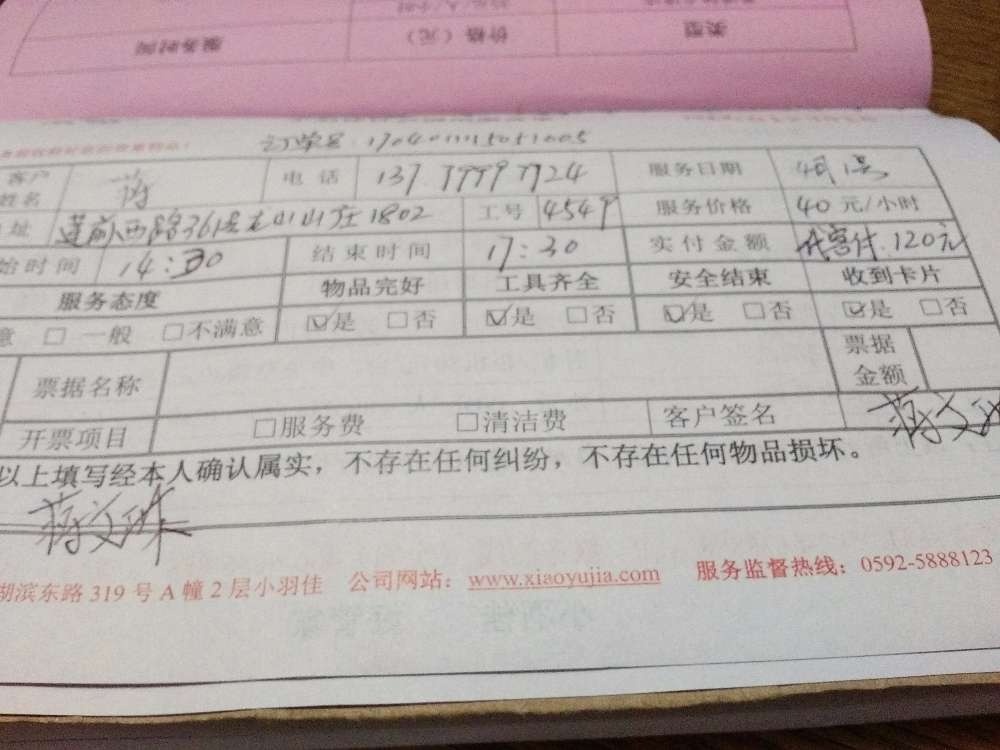 类型 价格（元） 服务时间
订单号 170401115051005
客户姓名 蒋 电话 服务日期 4月1号
址 莲前西路361号 山庄1802 工号 4549 服务价格 40元/小时
始时间 14:30 结束时间 17:30 实付金额 代客付.120元
服务态度 物品完好 工具齐全 安全结束 收到卡片
意 □ 一般 □不满意 ☑是 □否 ☑是 □否 ☑是 □否 ☑是 □否
票据名称 票据金额
开票项目 □服务费 □清洁费 客户签名 蒋文
以上填写经本人确认属实，不存在任何纠纷，不存在任何物品损坏。
蒋文琳
湖滨东路 319 号 A 幢 2 层小羽佳 公司网站：www.xiaoyujia.com 服务监督热线：0592-5888123